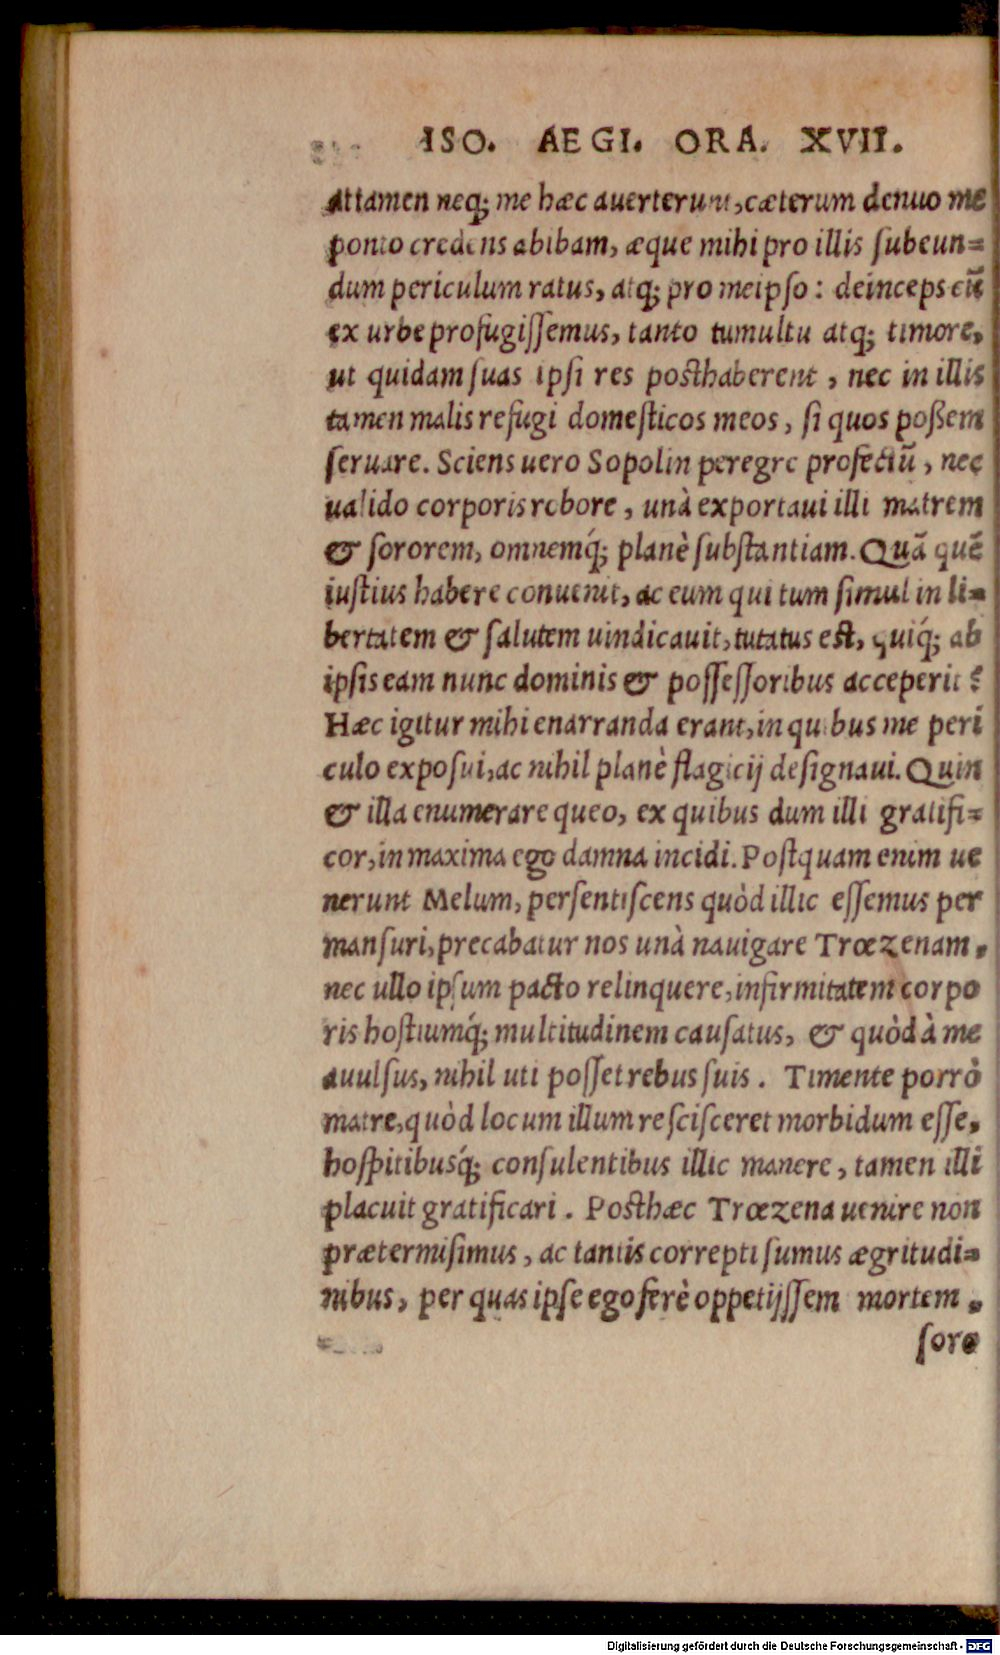 ISO. AEGI. ORA. XVII.
attamen neq; me hæc auerterunt, cæterum denuo me
ponto credens abibam, æque mihi pro illis ſubeun=
dum periculum ratus, atq; pro meipſo: deinceps cũ
ex urbe profugiſſemus, tanto tumultu atq; timore,
ut quidam ſuas ipſi res poſthaberent, nec in illis
tamen malis refugi domeſticos meos, ſi quos poßem
ſeruare. Sciens uero Sopolin peregre profectũ, nec
ualido corporis robore, unà exportaui illi matrem
& ſororem, omnemq́; planè ſubſtantiam. Quã quẽ
iuſtius habere conuenit, ac eum qui tum ſimul in li=
bertatem & ſalutem uindicauit, tutatus eſt, quiq́; ab
ipſis eam nunc dominis & poſſeſſoribus acceperit?
Hæc igitur mihi enarranda erant, in quibus me peri
culo expoſui, ac nihil planè flagicij deſignaui. Quin
& illa enumerare queo, ex quibus dum illi gratifi=
cor, in maxima ego damna incidi. Poſtquam enim ue
nerunt Melum, perſentiſcens quòd illic eſſemus per
manſuri, precabatur nos unà nauigare Trœzenam,
nec ullo ipſum pacto relinquere, infirmitatem corpo
ris hoſtiumq́; multitudinem cauſatus, & quòd à me
auulſus, nihil uti poſſet rebus ſuis. Timente porrò
matre, quòd locum illum reſciſceret morbidum eſſe,
hoſpitibusq́; conſulentibus illic manere, tamen illi
placuit gratificari. Poſthæc Trœzena uenire non
prætermiſimus, ac tantis correpti ſumus ægritudi=
nibus, per quas ipſe ego ferè oppetijſſem mortem,
ſore
Digitalisierung gefördert durch die Deutsche Forschungsgemeinschaft - DFG